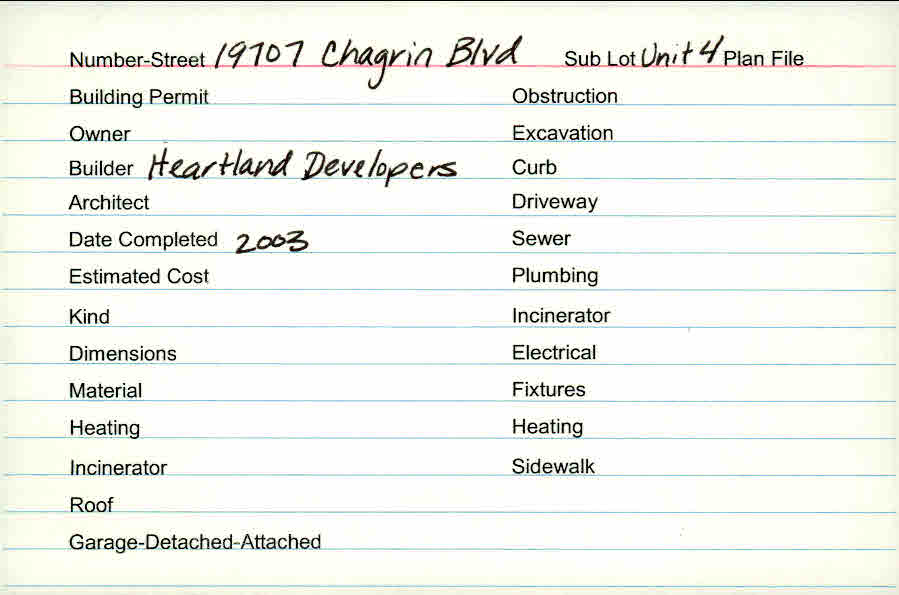 Number-Street 19707 Chagrin Blvd Sub Lot Unit 4 Plan File
Building Permit Obstruction
Owner Excavation
Builder Heartland Developers Curb
Architect Driveway
Date Completed 2003 Sewer
Estimated Cost Plumbing
Kind Incinerator
Dimensions Electrical
Material Fixtures
Heating Heating
Incinerator Sidewalk
Roof
Garage-Detached-Attached